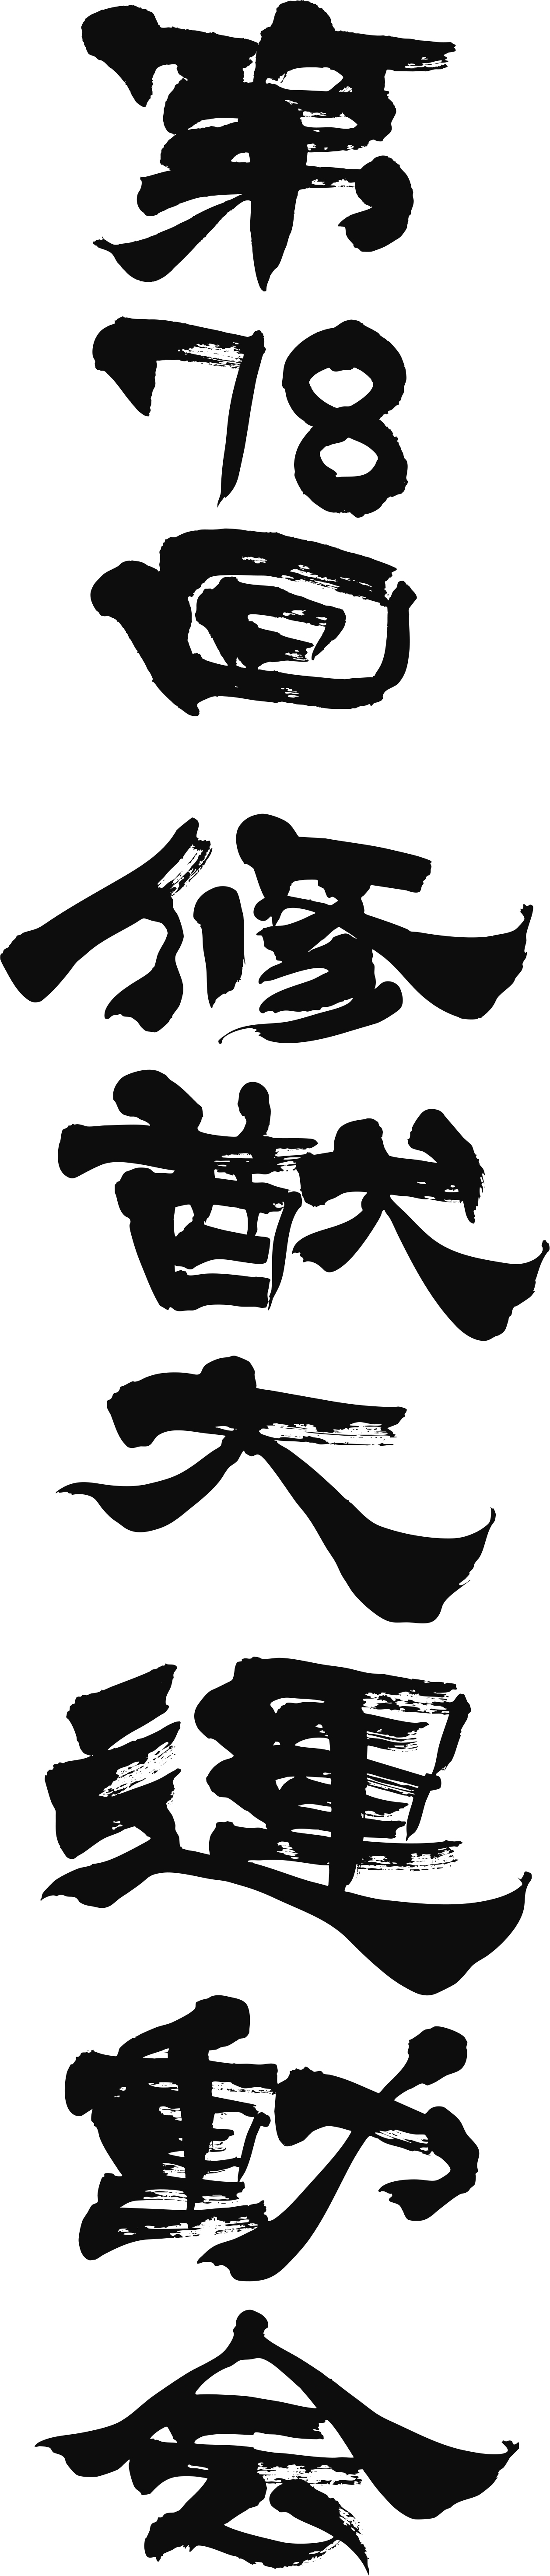 第78回 修猷大運動会